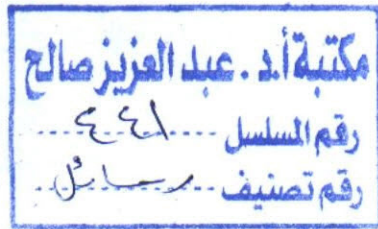 مكتبة أ.د . عبد العزيز صالح
رقم المسلسل ..... ٤٤٨ .....
رقم تصنيف ... رسائل ...